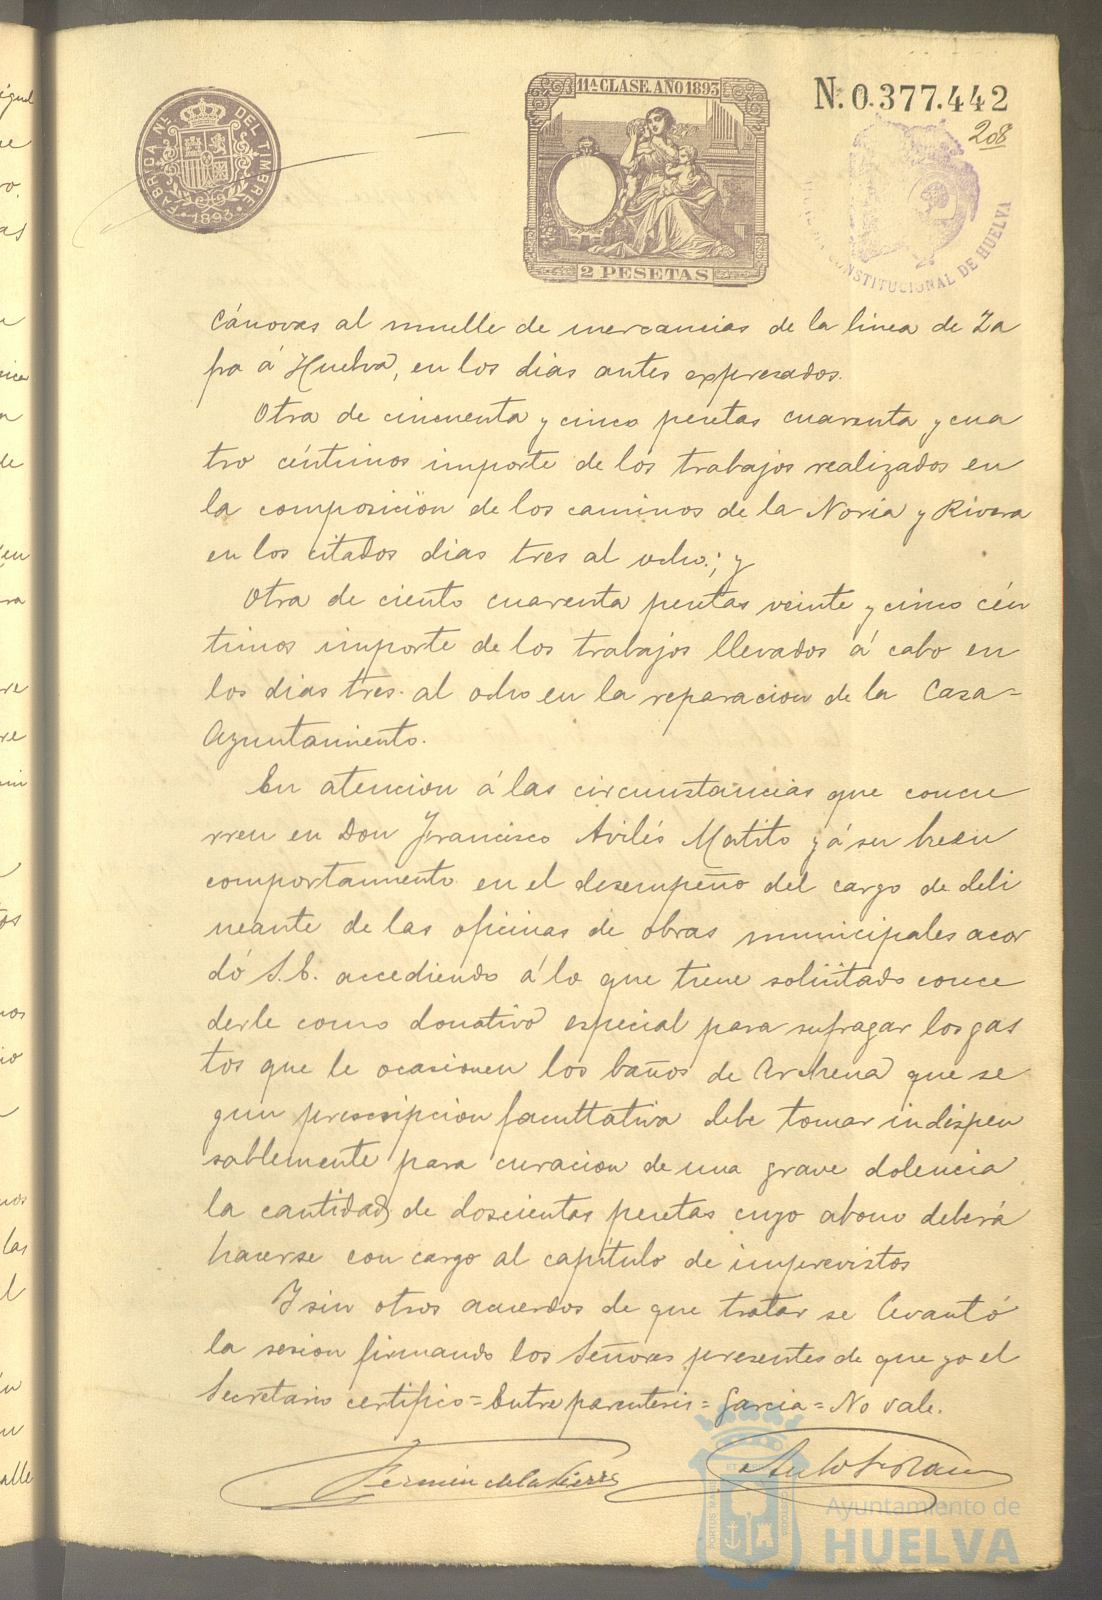 FABRICA NAL. DEL TIMBRE
1893
11ª CLASE. AÑO 1893
2 PESETAS
N. 0.377.442
208
CONSTITUCIONAL DE HUELVA
Cánovas al muelle de mercancias de la linea de Za
fra á Huelva, en los dias antes expresados.
Otra de cincuenta y cinco pesetas cuarenta y cua
tro céntimos importe de los trabajos realizados en
la composición de los caminos de la Noria y Rivera
en los citados dias tres al ocho.; y
Otra de ciento cuarenta pesetas veinte y cinco cén
timos importe de los trabajos llevados á cabo en
los dias tres al ocho en la reparacion de la Casa=
Ayuntamiento.
En atencion á las circunstancias que concu
rren en Don Francisco Avilés Matito y á su buen
comportamiento en el desempeño del cargo de deli
neante de las oficinas de obras municipales acor
dó S.E. accediendo á lo que tiene solicitado conce
derle como donativo especial para sufragar los gas
tos que le ocasionen los baños de Archena que se
gun prescripcion facultativa debe tomar indispen
sablemente para curacion de una grave dolencia
la cantidad de doscientas pesetas cuyo abono deberá
hacerse con cargo al capítulo de imprevistos
Y sin otros acuerdos de que tratar se levantó
la sesion firmando los Señores presentes de que yo el
Secretario certifico = Entre parentesis = Garcia = No vale.
Fermin de la Sierra
Ayuntamiento de
HUELVA